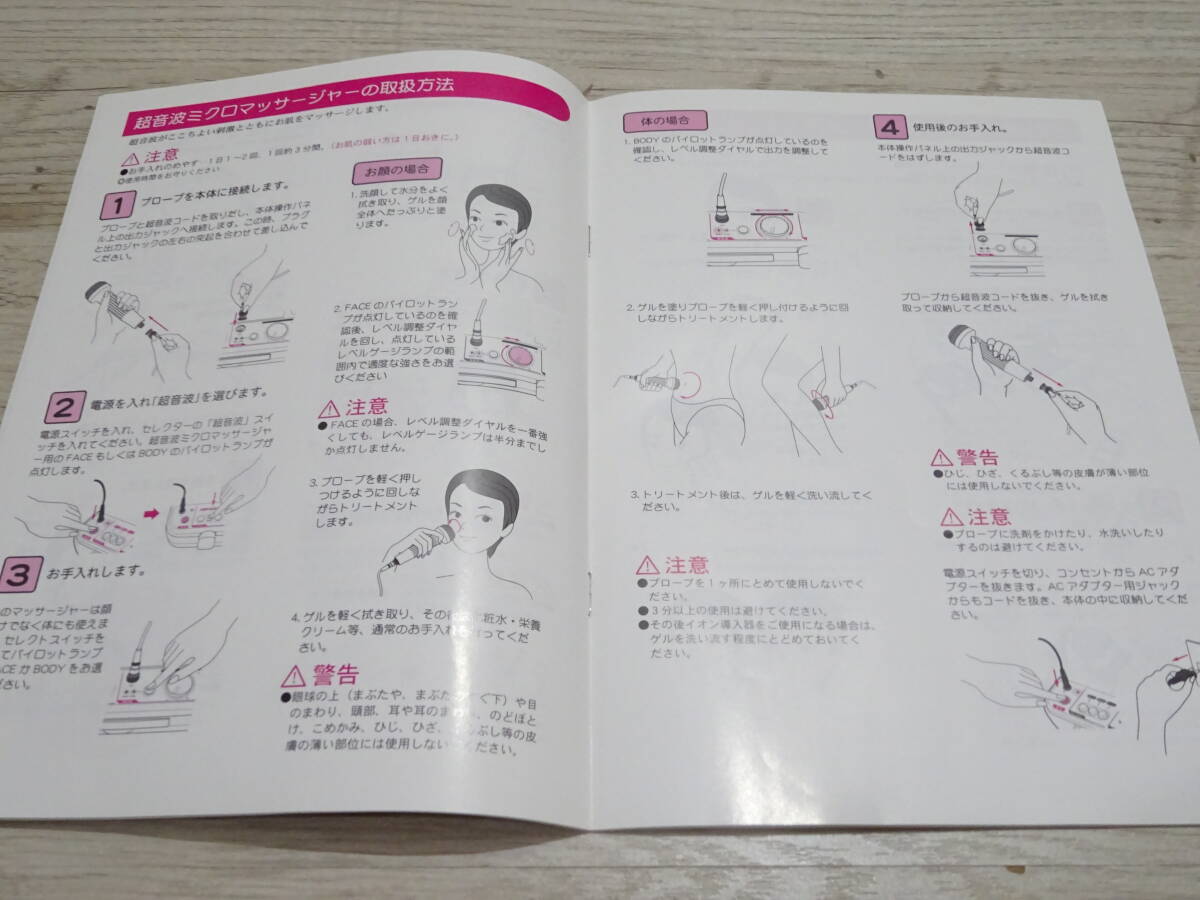 超音波ミクロマッサージャーの取扱方法
超音波がここちよい刺激とともにお肌をマッサージします。
注意
●お手入れのめやす 1日1〜2回、1回約3分間。(お肌の弱い方は1日おきに。)
使用時間をお守りください
1 プローブを本体に接続します。
プローブと超音波コードを取りだし、本体操作パネ
ル上の出力ジャックへ接続します。この時、プラグ
と出力ジャックの左右の突起を合わせて差し込んで
ください。
2 電源を入れ「超音波」を選びます。
電源スイッチを入れ、セレクターの「超音波」スイ
ッチを入れてください。超音波ミクロマッサージャ
ー用のFACEもしくはBODYのパイロットランプが
点灯します。
3 お手入れします。
のマッサージャーは顔
けでなく体にも使えま
セレクトスイッチを
てパイロットランプ
ACEかBODYをお選
ださい。
お顔の場合
1.洗顔して水分をよく
拭き取り、ゲルを顔
全体へたっぷりと塗
ります。
2.FACEのパイロットラン
プが点灯しているのを確
認後、レベル調整ダイヤ
ルを回し、点灯している
レベルゲージランプの範
囲内で適度な強さをお選
びください
注意
●FACEの場合、レベル調整ダイヤルを一番強
くしても、レベルゲージランプは半分までし
か点灯しません。
3.プローブを軽く押し
つけるように回しな
がらトリートメント
します。
4.ゲルを軽く拭き取り、その後 化粧水・栄養
クリーム等、通常のお手入れ 行ってくだ
さい。
警告
●眼球の上(まぶたや、まぶた く下)や目
のまわり、頭部、耳や耳のま 、のどぼと
け、こめかみ、ひじ、ひざ、 ぶし等の皮
膚の薄い部位には使用しない ください。
体の場合
1.BODYのパイロットランプが点灯しているのを
確認し、レベル調整ダイヤルで出力を調整して
ください。
2.ゲルを塗りプローブを軽く押し付けるように回
しながらトリートメントします。
3.トリートメント後は、ゲルを軽く洗い流してく
ださい。
注意
●プローブを1ヶ所にとめて使用しないでく
ださい。
●3分以上の使用は避けてください。
●その後イオン導入器をご使用になる場合は、
ゲルを洗い流す程度にとどめておいてく
ださい。
4 使用後のお手入れ。
本体操作パネル上の出力ジャックから超音波コ
ードをはずします。
プローブから超音波コードを抜き、ゲルを拭き
取って収納してください。
警告
●ひじ、ひざ、くるぶし等の皮膚が薄い部位
には使用しないでください。
注意
●プローブに洗剤をかけたり、水洗いしたり
するのは避けてください。
電源スイッチを切り、コンセントからACアダ
プターを抜きます。ACアダプター用ジャック
からもコードを抜き、本体の中に収納してくだ
さい。